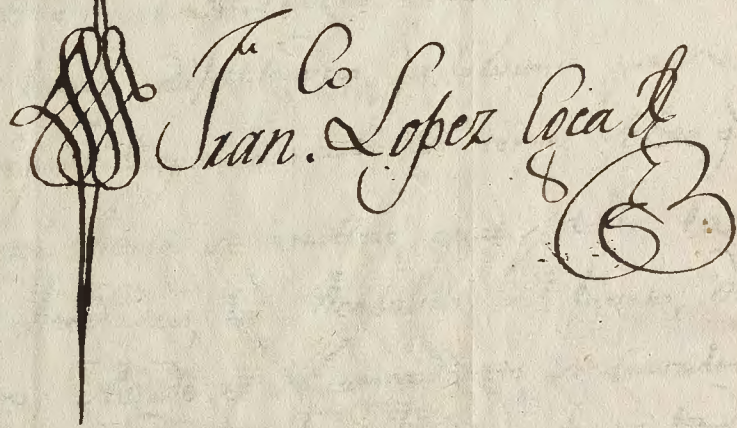 Fran.co Lopez Coca &